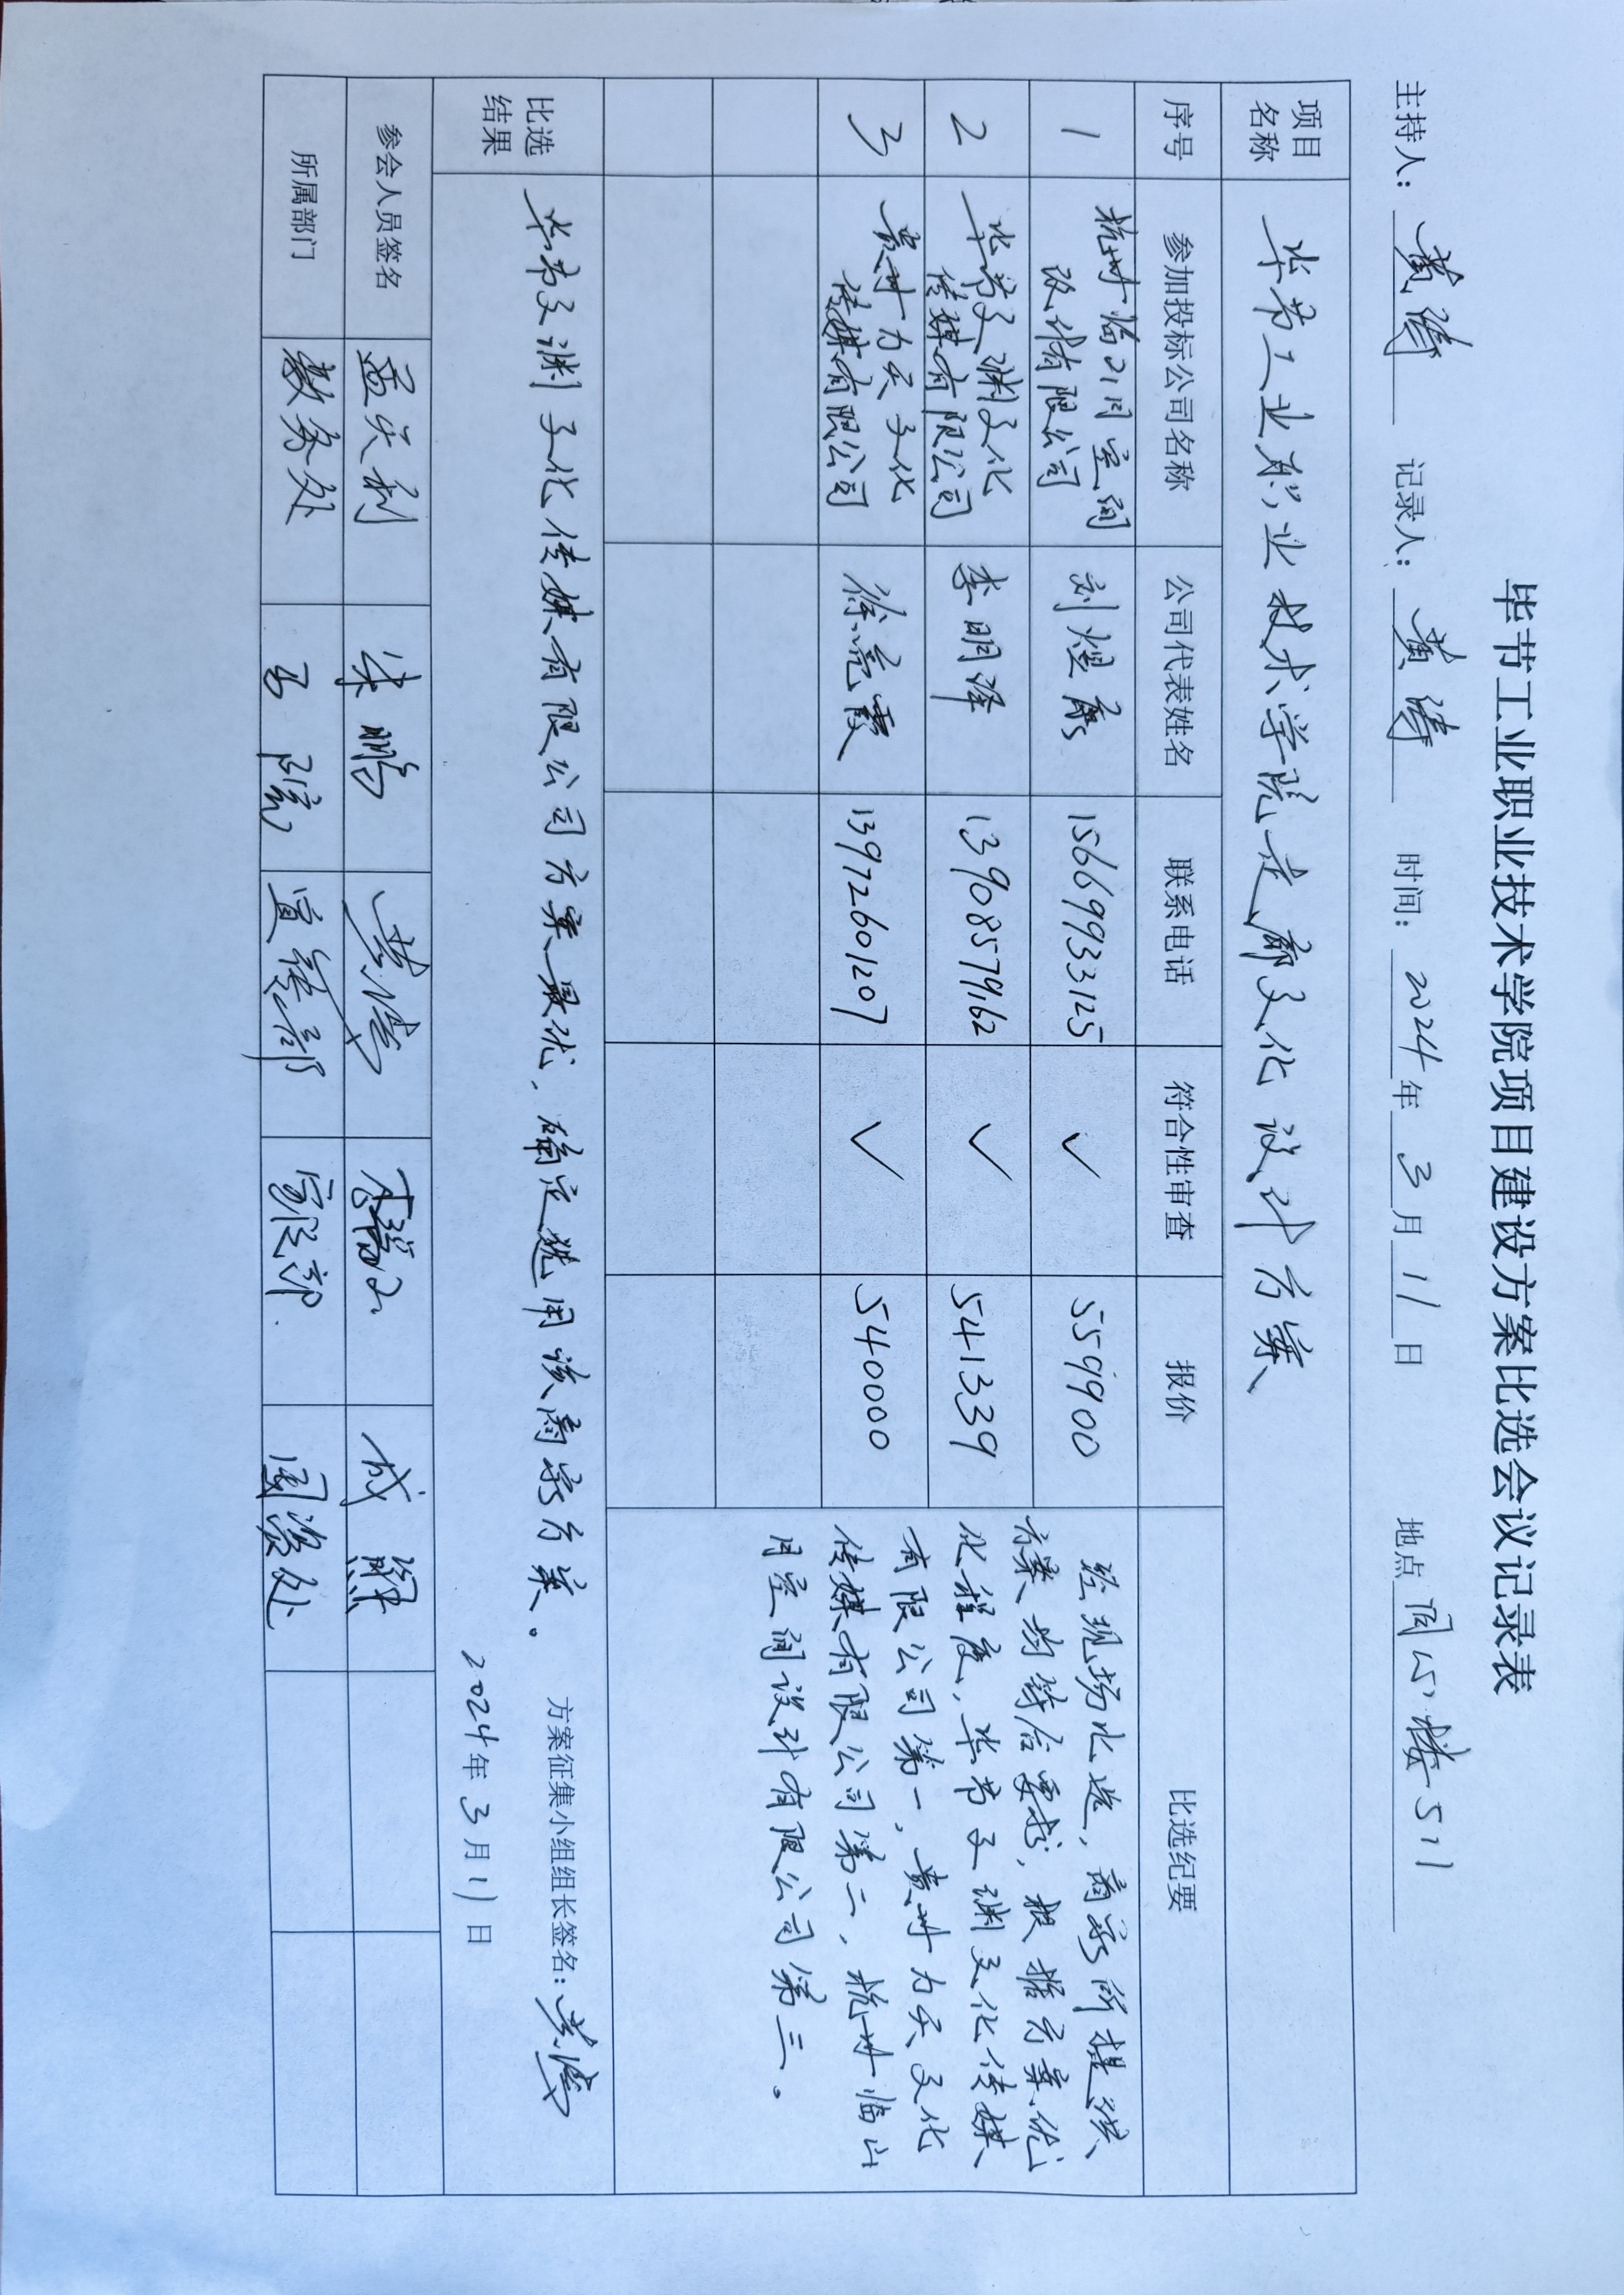 毕节工业职业技术学院项目建设方案比选会议记录表
主持人: 黄涛 记录人: 黄涛 时间: 2024年3月11日 地点 同心楼511
项目名称 毕节工业职业技术学院走廊文化设计方案
序号 参加投标公司名称 公司代表姓名 联系电话 符合性审查 报价 比选纪要
1 杭州临山月空间设计有限公司 刘煜 15669933125 ✓ 559900
2 毕节文渊文化传媒有限公司 李明泽 13908579162 ✓ 541339
3 贵州力天文化传媒有限公司 徐亮霞 13972601207 ✓ 540000
经现场比选,商家所提供
方案均符合要求,根据方案优
化程度,毕节文渊文化传媒
有限公司第一,贵州力天文化
传媒有限公司第二,杭州临山
月空间设计有限公司第三。
比选结果 毕节文渊文化传媒有限公司方案最优,确定选用该商家方案。
方案征集小组组长签名: 黄涛
2024年3月11日
参会人员签名 孟关利 朱鹏 黄涛 成耀
所属部门 教务处 五院 宣传部 安保部 国资处